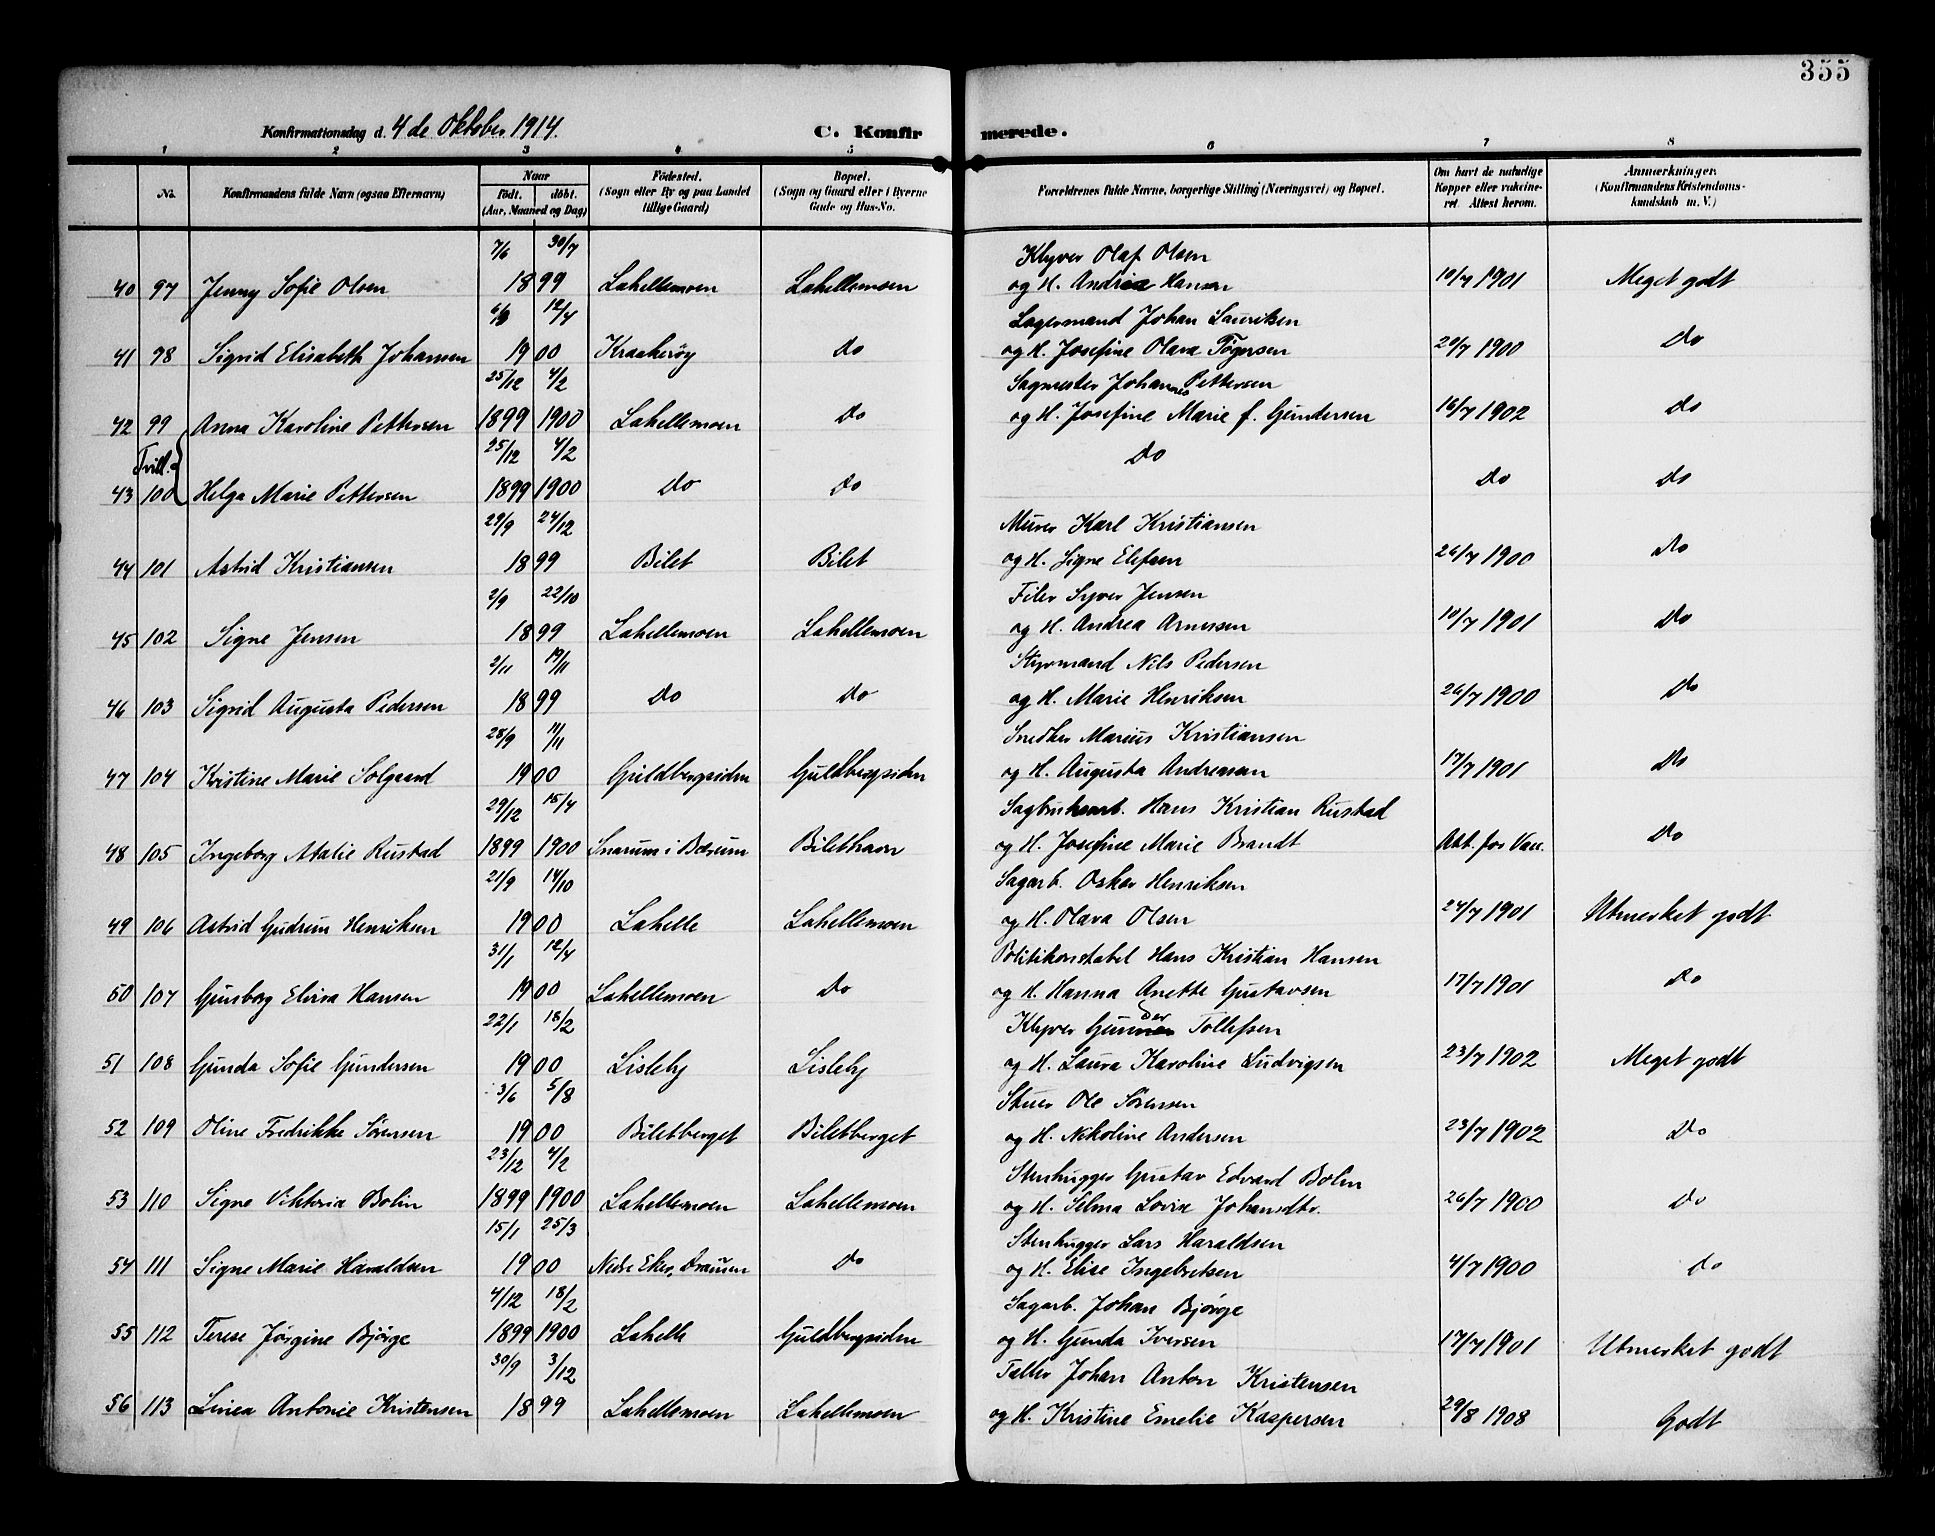 355
Konfirmationsdag d. 4 de Oktober 1914. C. Konfirmerede.
1 2 3 4 5 6 7 8
No. Konfirmandens fulde Navn (ogsaa Efternavn) Naar født. døbt. (Aar, Maaned og Dag) Fødested. (Sogn eller By og paa Landet tillige Gaard) Bopæl. (Sogn og Gaard eller i Byerne Gade og Hus-No. Forældrenes fulde Navne, borgerlige Stilling (Næringsvei) og Bopæl. Om havt de naturlige Kopper eller vakcineret. Attest herom. Anmærkninger. (Konfirmandens Kristendomskundskab m. V.)
7/6 30/7 Klyver Olaf Olsen
40 97 Jenny Sofie Olsen 1899 Lahellemoen Lahellemoen og H. Andrea Hansen 10/7 1901 Meget godt
6/3 12/4 Lagermand Johan Lauriksen
41 98 Sigrid Elisabeth Johansen 1900 Kraakerøy Do og H. Josefine Olava Tøgersen 20/7 1900 Do
25/12 4/2 Sagmester Johannes Pettersen
42 99 Anna Karoline Pettersen 1899 1900 Lahellemoen Do og H. Josefine Marie f. Gundersen 16/7 1902 Do
Tvill. 25/12 4/2 Do
43 100 Helga Marie Pettersen 1899 1900 Do Do Do Do
29/9 24/12 Murer Karl Kristiansen
44 101 Astrid Kristiansen 1899 Bilet Bilet og H. Signe Elefsen 26/7 1900 Do
2/9 22/10 Filer Syver Jensen
45 102 Signe Jensen 1899 Lahellemoen Lahellemoen og H. Andrea Arnesen 10/7 1901 Do
2/11 19/11 Styrmand Nils Pedersen
46 103 Sigrid Augusta Pedersen 1899 Do Do og H. Marie Henriksen 26/7 1900 Do
28/9 11/11 Snedker Marius Kristiansen
47 104 Kristine Marie Solgaard 1900 Guldbergsiden Guldbergsiden og H. Augusta Andreasen 17/7 1901 Do
29/12 15/4 Sagbruksarb. Hans Kristian Rustad
48 105 Ingeborg Atalie Rustad 1899 1900 Snarum i Bærum Bilethavn og H. Josefine Marie Brandt Att. for Vac. Do
21/9 14/10 Sagarb. Oskar Henriksen
49 106 Astrid Gudrun Henriksen 1900 Lahelle Lahellemoen og H. Olava Olsen 24/7 1901 Utmerket godt
31/1 12/4 Politikonstabel Hans Kristian Hansen
50 107 Gunborg Elvira Hansen 1900 Lahellemoen Do og H. Hanna Anette Gustavsen 17/7 1901 Do
22/1 18/2 Klyver Gunder Tollefsen
51 108 Gunda Sofie Gundersen 1900 Lisleby Lisleby og H. Laura Karoline Ludvigsen 23/7 1902 Meget godt
3/6 5/8 Stuer Ole Sørensen
52 109 Oline Fredrikke Sørensen 1900 Biletberget Biletberget og H. Nikoline Andersen 23/7 1902 Do
23/12 4/2 Stenhugger Gustav Edvard Bolin
53 110 Signe Viktoria Bolin 1899 1900 Lahellemoen Lahellemoen og H. Selma Lovise Johansdtr. 26/7 1900 Do
15/1 25/3 Stenhugger Lars Haraldsen
54 111 Signe Marie Haraldsen 1900 Nedre Eker, Dramen Do og H. Elise Ingebretsen 4/7 1900 do
4/12 18/2 Sagarb. Johan Bjørge
55 112 Terese Jørgine Bjørge 1899 1900 Lahelle Guldbergsiden og H. Gunda Iversen 17/7 1901 Utmerket godt
30/9 3/12 Taller Johan Anton Kristensen
56 113 Linea Antonie Kristensen 1899 Lahellemoen Lahellemoen og H. Kristine Emelie Kaspersen 29/8 1908 Godt